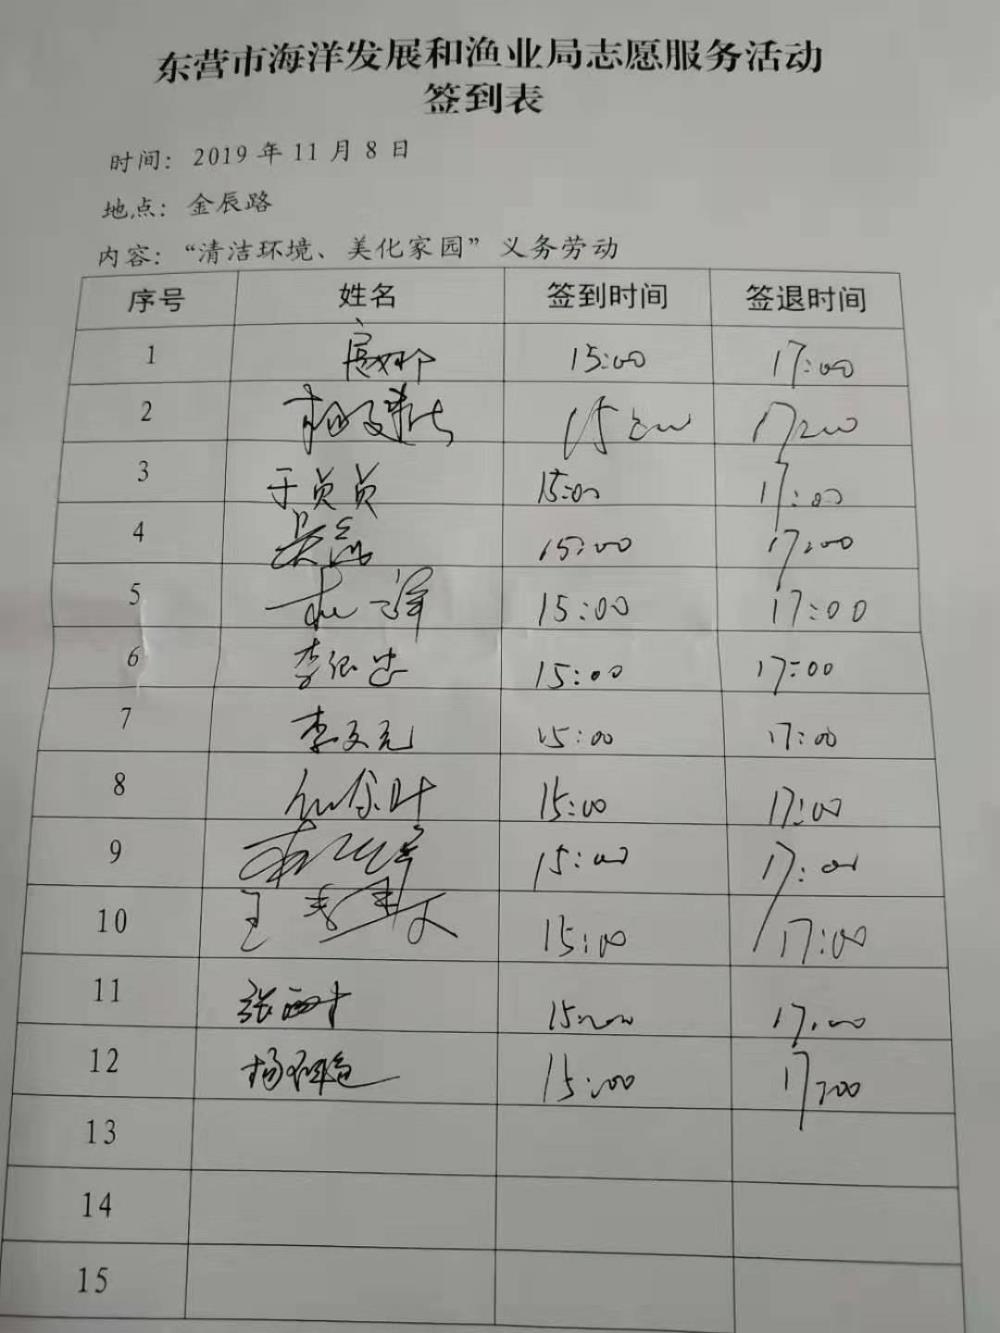 东营市海洋发展和渔业局志愿服务活动
签到表
时间：2019年11月8日
地点：金辰路
内容：“清洁环境、美化家园”义务劳动
序号 姓名 签到时间 签退时间
1 15:00 17:00
2 15:00 17:00
3 于贞贞 15:00 17:00
4 吴磊 15:00 17:00
5 15:00 17:00
6 李 15:00 17:00
7 李文元 15:00 17:00
8 15:00 17:00
9 15:00 17:00
10 王 15:00 17:00
11 张 15:00 17:00
12 杨 15:00 17:00
13
14
15